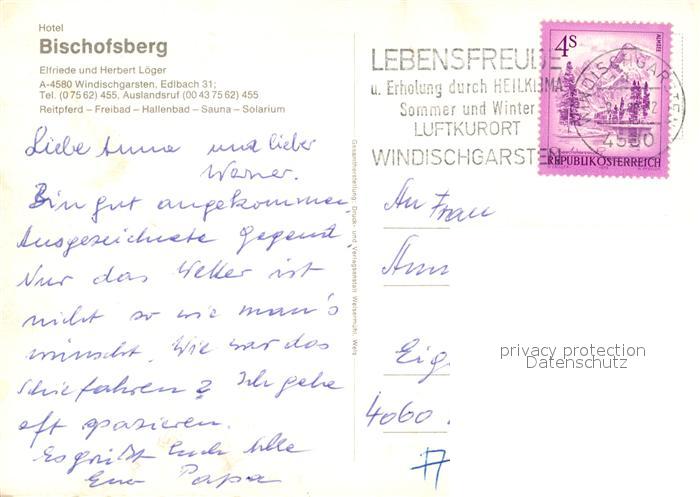 Hotel
Bischofsberg
Elfriede und Herbert Löger
A-4580 Windischgarsten, Edlbach 31;
Tel. (0 75 62) 455, Auslandsruf (00 43 75 62) 455
Reitpferd – Freibad – Hallenbad – Sauna – Solarium
Liebe Anna und lieber
Werner.
Bin gut angekommen,
Ausgezeichnete Gegend,
Nur das Wetter ist
nicht so wie man's
wünscht. Wie war das
Schiefahren? Ich gehe
oft spazieren.
Es grüßt Euch Alle
Euer Papa
Gesamtherstellung: Druck- und Verlagsanstalt Welsermühl, Wels
LEBENSFREUDE
u. Erholung durch HEILKLIMA
Sommer und Winter
LUFTKURORT
WINDISCHGARSTEN
4S
ALMSEE
REPUBLIK ÖSTERREICH
WINDISCHGARSTEN
4580
An Frau
Ann
Eig
4060
privacy protection
Datenschutz